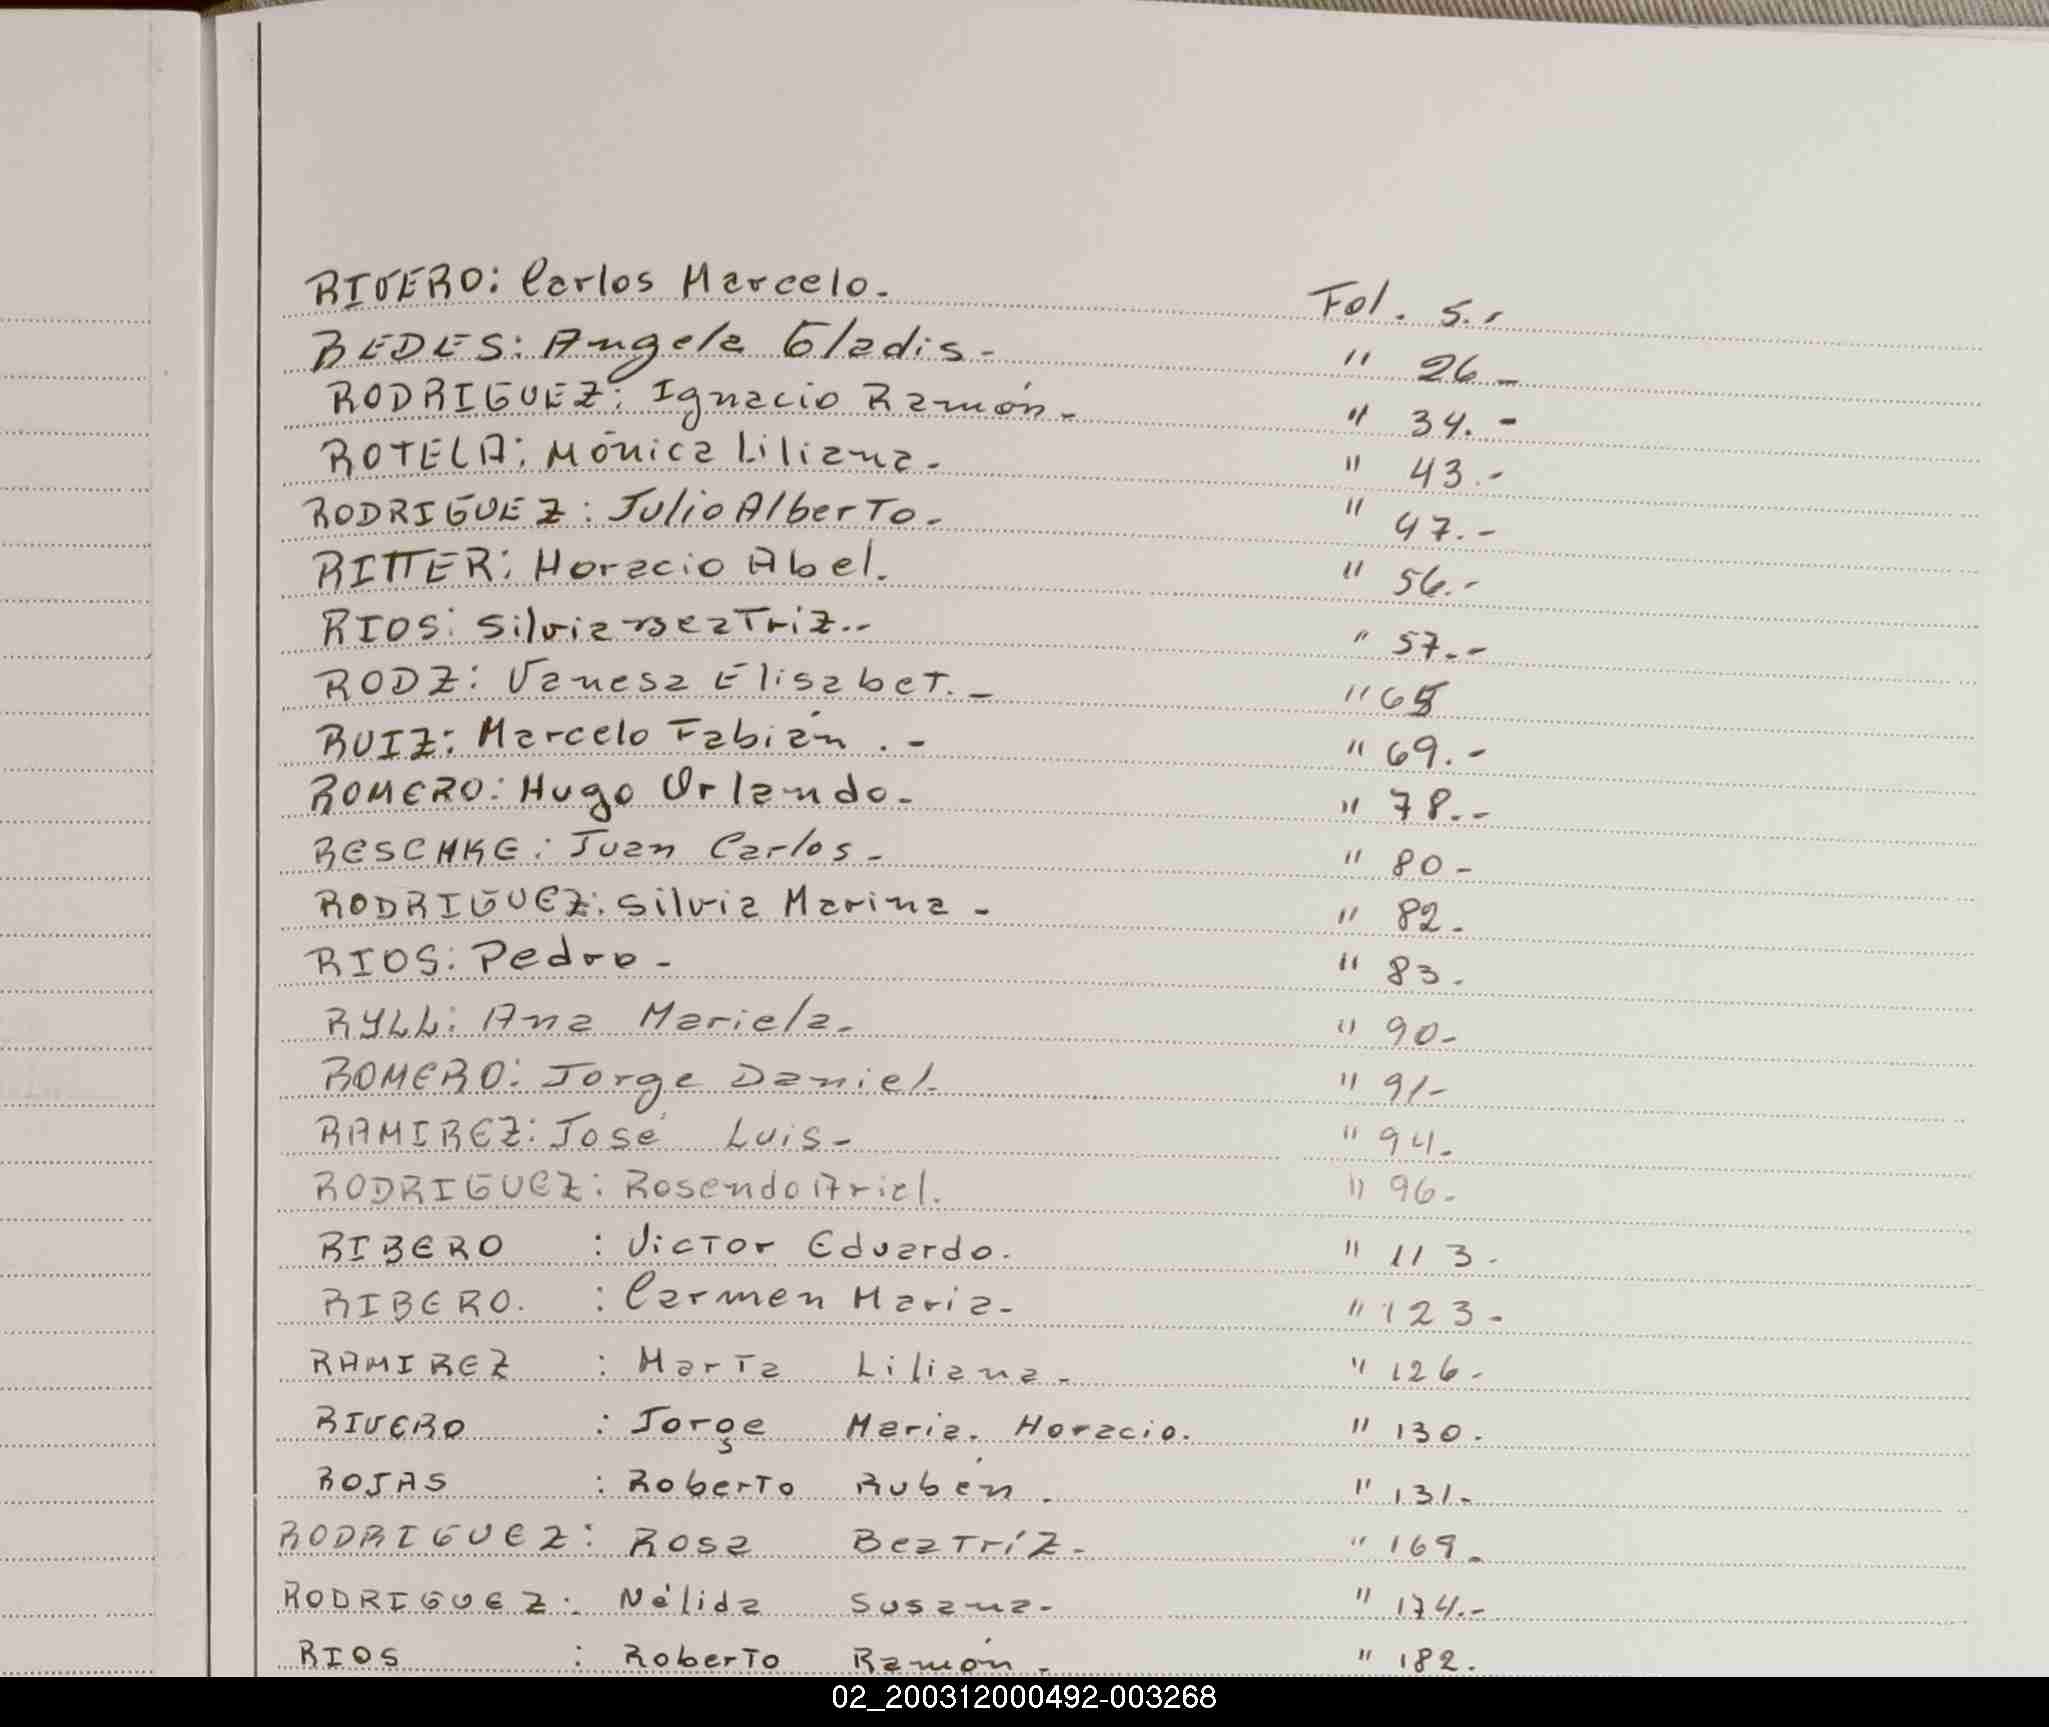 RIVERO: Carlos Marcelo. Fol. 5.-
REDES: Angela Gladis- " 26-
RODRIGUEZ: Ignacio Ramón- " 34.-
ROTELA: Mónica Liliana- " 43.-
RODRIGUEZ: Julio Alberto- " 47.-
RITTER: Horacio Abel. " 56.-
RIOS: Silvia Beatriz.- " 57.-
RODZ: Vanesa Elisabet.- "
RUIZ: Marcelo Fabián.- " 69.-
ROMERO: Hugo Orlando- " 78.-
RESCHKE: Juan Carlos- " 80-
RODRIGUEZ: Silvia Marina- " 82-
RIOS: Pedro- " 83-
RYLL: Ana Mariela- " 90-
ROMERO: Jorge Daniel. " 91-
RAMIREZ: José Luis- " 94-
RODRIGUEZ: Rosendo Ariel. " 96-
RIBERO : Victor Eduardo. " 113-
RIBERO. : Carmen Maria- " 123-
RAMIREZ : Marta Liliana- " 126-
RIVERO : Jorge Maria. Horacio. " 130-
ROJAS : Roberto Rubén. " 131-
RODRIGUEZ: Rosa Beatríz- " 169-
RODRIGUEZ: Nélida Susana- " 174.-
RIOS : Roberto Ramón- " 182.
02_200312000492-003268